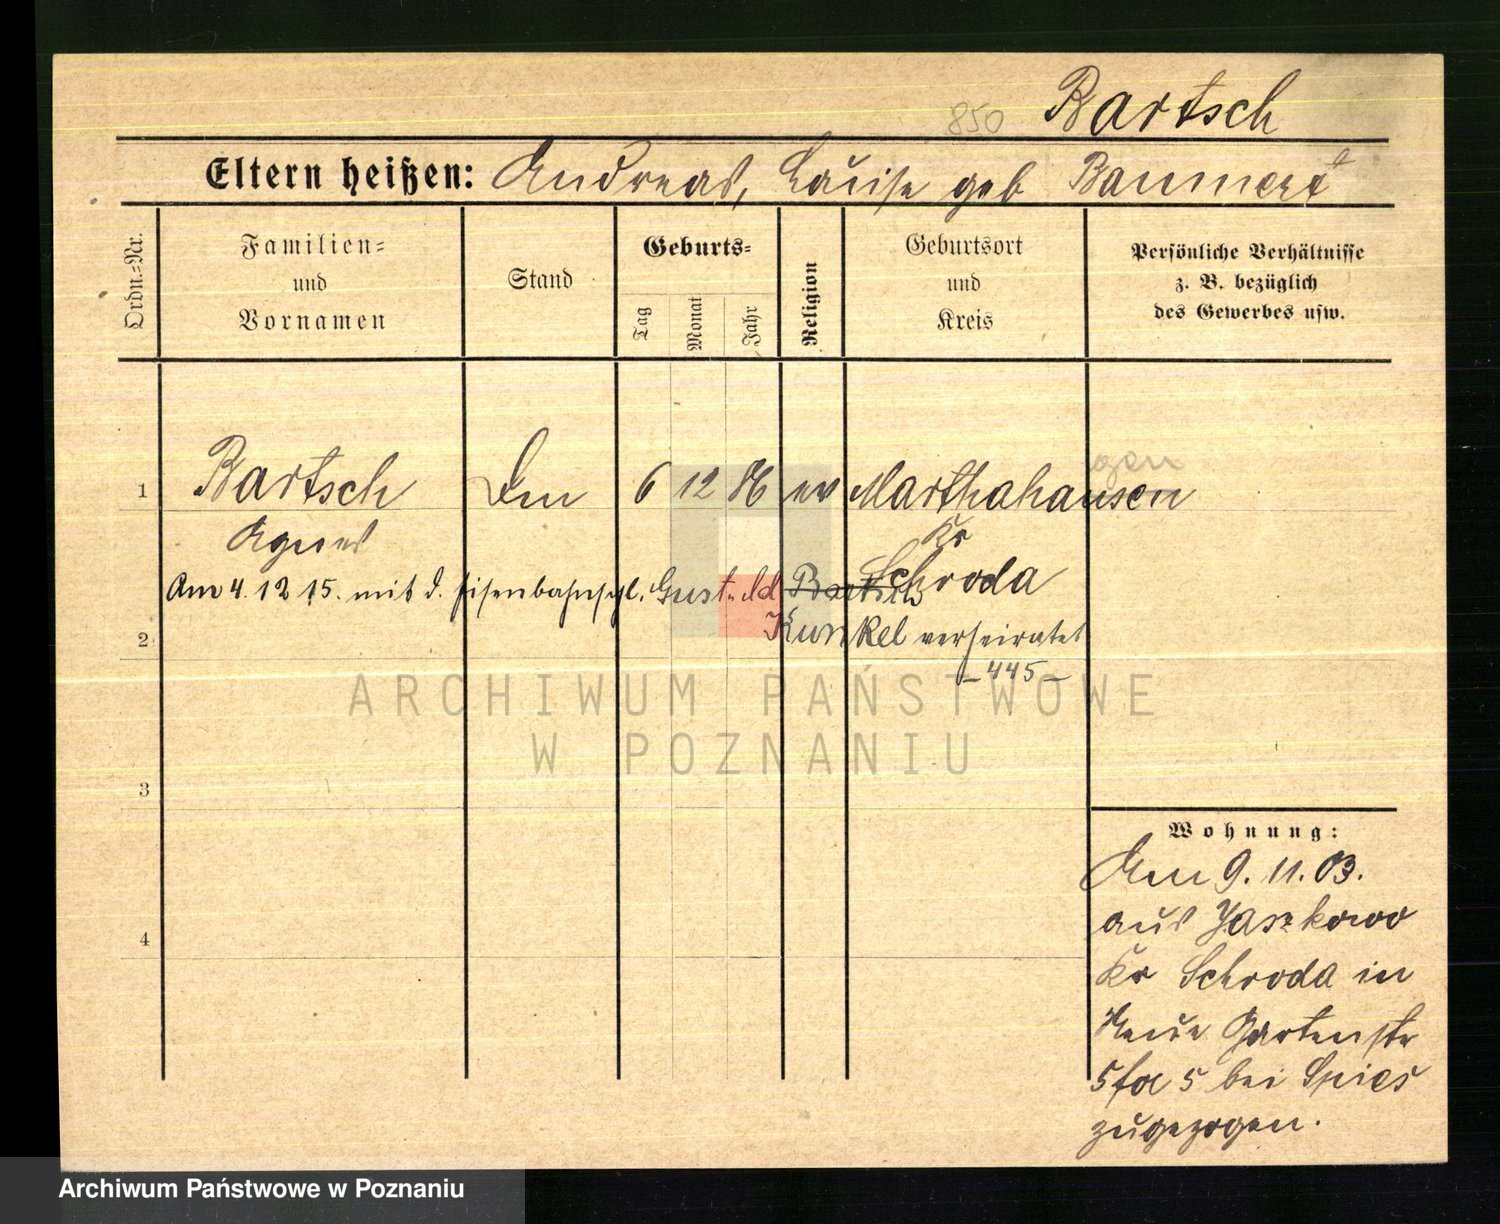 850 Bartsch
Eltern heißen: Andreas, Luise geb Baumert
Ordn.-Nr.
Familien-
und
Vornamen
Stand
Geburts-
Tag
Monat
Jahr
Religion
Geburtsort
und
Kreis
Persönliche Verhältnisse
z. B. bezüglich
des Gewerbes usw.
gen
1 Bartsch 6 12 86 ev Marthahausen
Agnes Kr
Schroda
Am 4. 12 15. mit d. Eisenbahnschl. Gust. Ad Bartsch
2 Kunkel verheiratet
-445-
ARCHIWUM PAŃSTWOWE
W POZNANIU
3
4
Wohnung:
Am 9. 11. 03.
aus Jaszkowo
Kr Schroda in
Neue Gartenstr
5 bei Spies
zugezogen.
Archiwum Państwowe w Poznaniu